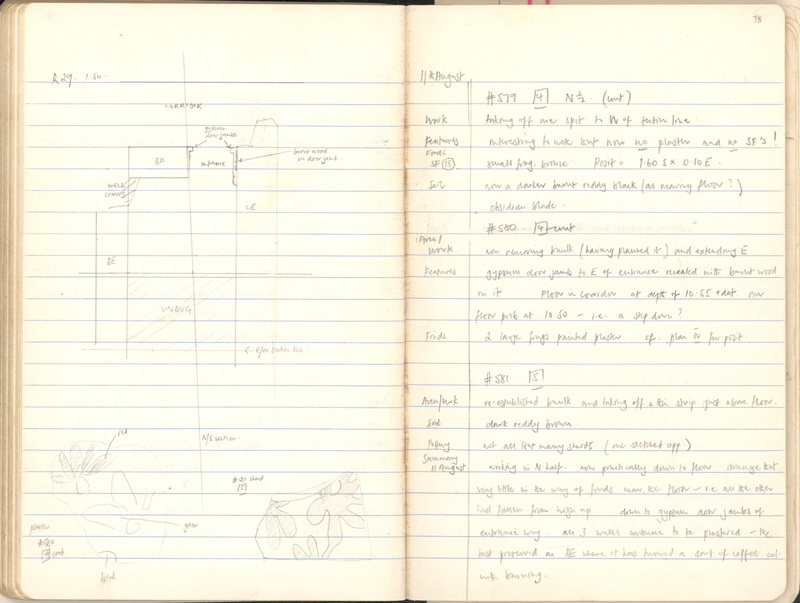 R29. 1:50.
CORRIDOR
gypsum
door jambs
burnt wood
on door jamb.
BF
entrance
WELL
CE
BE
UNDUG
← E/W Section line
N/S section.
red
#581 sherd
[5]
plaster
#580
[4] cont
glue
fired
78
11th August
#579 [4] N ½. (cont)
Work taking off one spit to W of section line.
Features interesting to note that now no plaster and no SF's!
Finds
SF (13) small frag. bronze Posit = 1.60 S x 0.10 E.
Soil now a darker burnt reddy black (as nearing floor?)
obsidian blade.
#580 [4] cont
Area/
Work now removing baulk (having planned it) and extending E
Features gypsum door jamb to E of entrance revealed with burnt wood
on it Floor in corridor at depth of 10.55 + dat. our
floor prob at 10.50 – i.e. a step down?
Finds 2 large frags painted plaster. cf. plan for posit.
#581 [5]
Area/Work re-established baulk and taking off a thin strip just above floor.
Soil dark reddy brown
Pottery not all that many sherds (one sketched opp)
Summary
11 August working in N half. now practically down to floor strange that
very little in the way of finds near the floor – i.e. all the other
had fallen from high up down to gypsum door jambs of
entrance way. all 3 walls continue to be plastered – the
best preserved on BE where it has turned a sort of coffee col.
with burning.